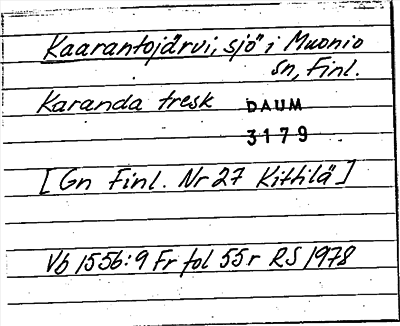 Kaarantojärvi, sjö i Muonio
sn, Finl.
Karanda tresk DAUM
3179
[Gn Finl. Nr 27 Kittilä]
Vb 1556:9 Fr fol 55r RS 1978